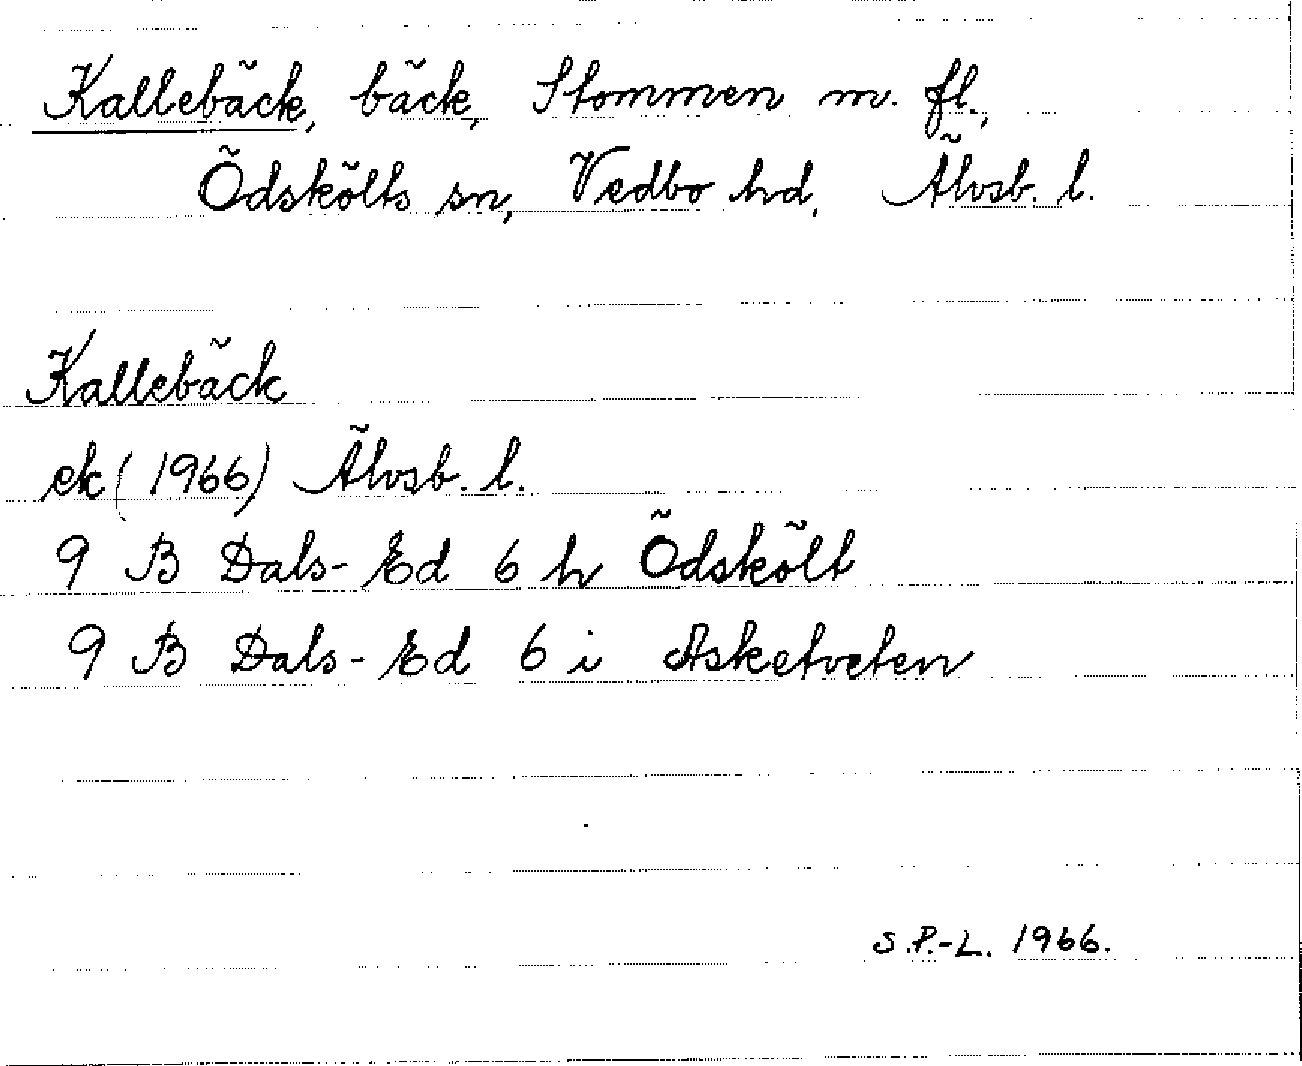 Kallebäck, bäck, Stommen m. fl.,
Ödskölts sn, Vedbo hd, Älvsb. l.
Kallebäck
ek (1966) Älvsb. l.
9 B Dals-Ed 6 h Ödskölt
9 B Dals-Ed 6 i Asketveten
S.P.-L. 1966.